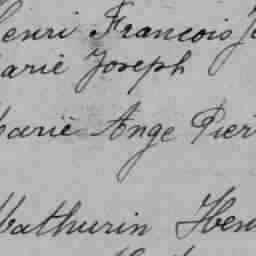 Henri François
Marie Joseph
Marie Ange Pier
Mathurin Hen